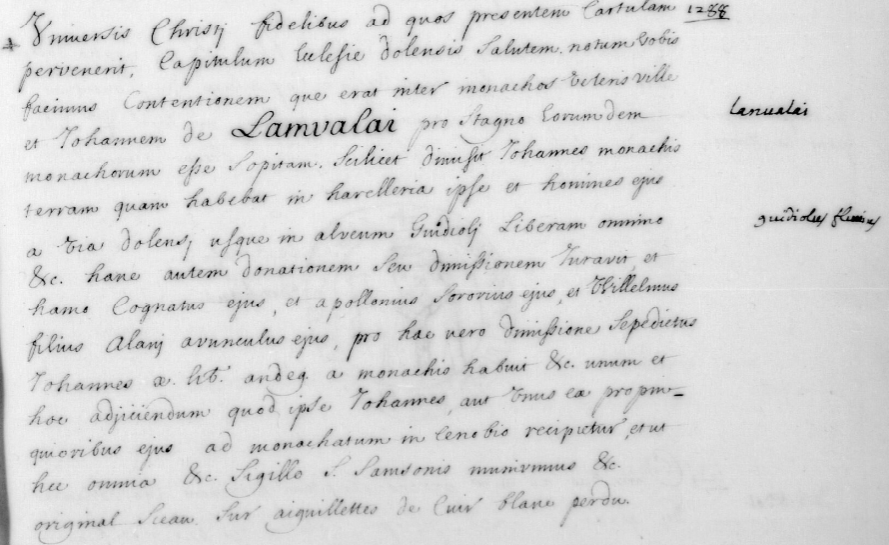 Vniuersis Christj fidelibus ad quos presentem Cartulam 1288
pervenerit, Capitulum Eclesie dolensis Salutem. notum Vobis
facimus Contentionem que erat inter monachos Veteris ville
et Johannem de Lamvalai pro Stagno Eorumdem lanvalai
monachorum esse Sopitam. Scilicet dimisit Johannes monachis
terram quam habebat in harelleria ipse et homines ejus
a Via dolensj usque in alveum Guidiolj Liberam omnino guidiolus fluvius
&c. hanc autem donationem Seu dimissionem Juravit, et
hamo Cognatus ejus, et apollonius Sororius ejus, et Willelmus
filius Alanj avunculus ejus, pro hac vero dimissione Sepedictus
Johannes x. lib. andeg. a monachis habuit &c. unum et
hoc adjiciendum quod ipse Johannes, aut Vnus ex propin=
quioribus ejus ad monachatum in Cenobio recipietur, et ut
hec omnia &c. Sigillo S. Samsonis munivimus &c.
original Sceau Sur aiguillettes de Cuir blanc perdu.